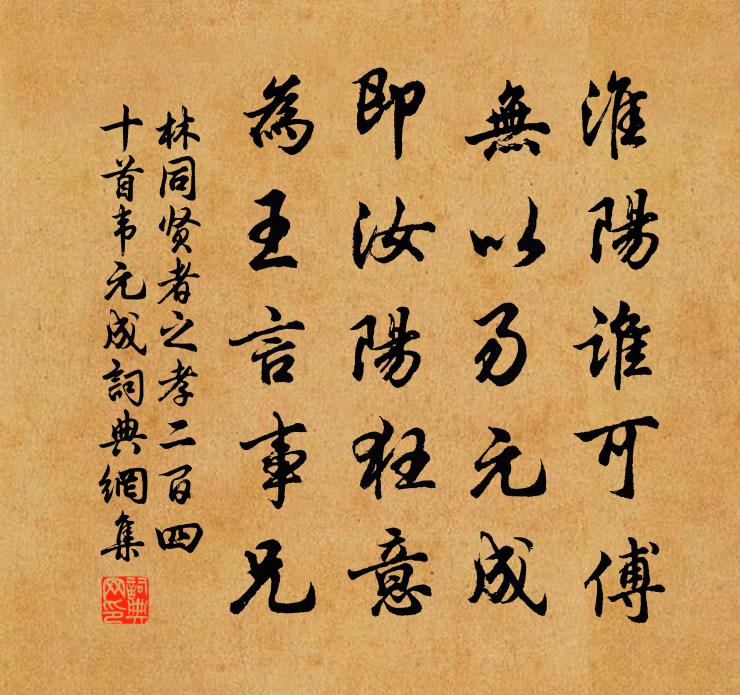 淮陽誰可傅
無以易元成
即汝陽狂意
為王言事兄
林同贤者之孝二百四
十首韦元成詞典網集
詞典
网印